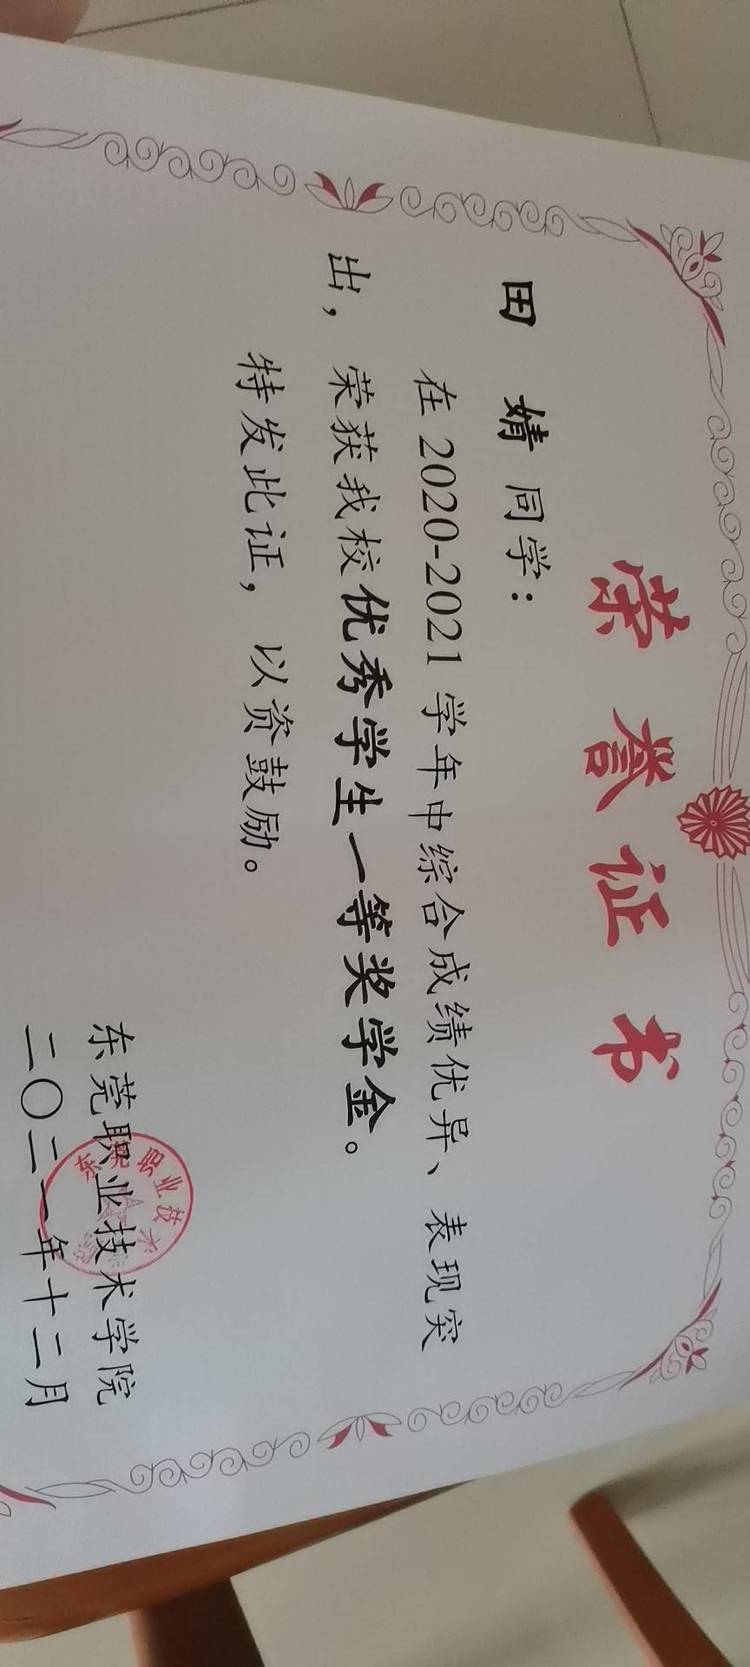 荣誉证书
田 婧同学：
在2020-2021学年中综合成绩优异、表现突
出，荣获我校优秀学生一等奖学金。
特发此证，以资鼓励。
东莞职业技术学院
二〇二一年十二月
东莞职业技术